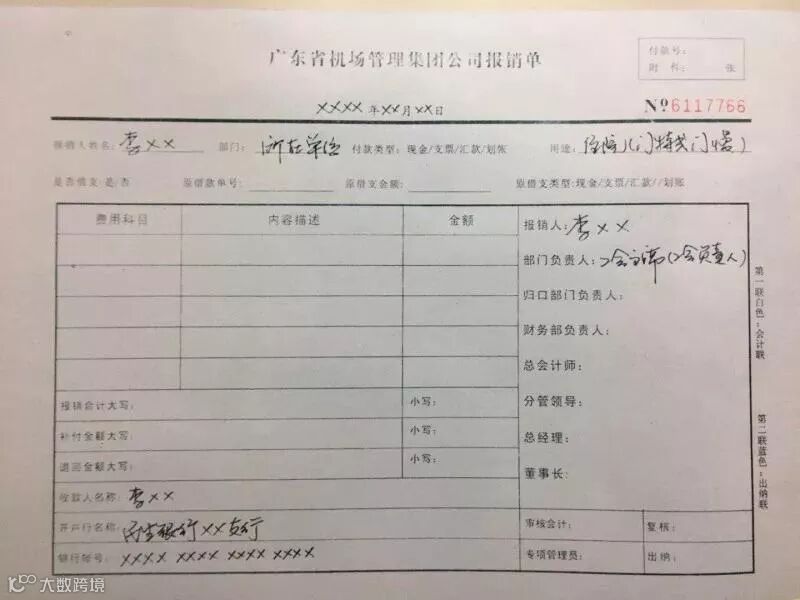 广东省机场管理集团公司报销单
付款号:
附件: 张
XXXX年XX月XX日
№6117766
报销人姓名:李XX 部门:所在单位 付款类型:现金/支票/汇款/划账 用途:住院(门特或门慢)
是否借支:是/否 原借款单号: 原借支金额: 原借支类型:现金/支票/汇款//划账
费用科目 内容描述 金额
报销人:李XX
部门负责人:工会主席(工会负责人)
归口部门负责人:
财务部负责人:
总会计师:
分管领导:
总经理:
董事长:
报销合计大写: 小写:
补付金额大写: 小写:
退回金额大写: 小写:
收款人名称:李XX
开户行名称:民生银行XX支行
审核会计: 复核:
银行帐号:XXXX XXXX XXXX XXXX
专项管理员: 出纳:
第一联白色:会计联
第二联蓝色:出纳联
大数跨境